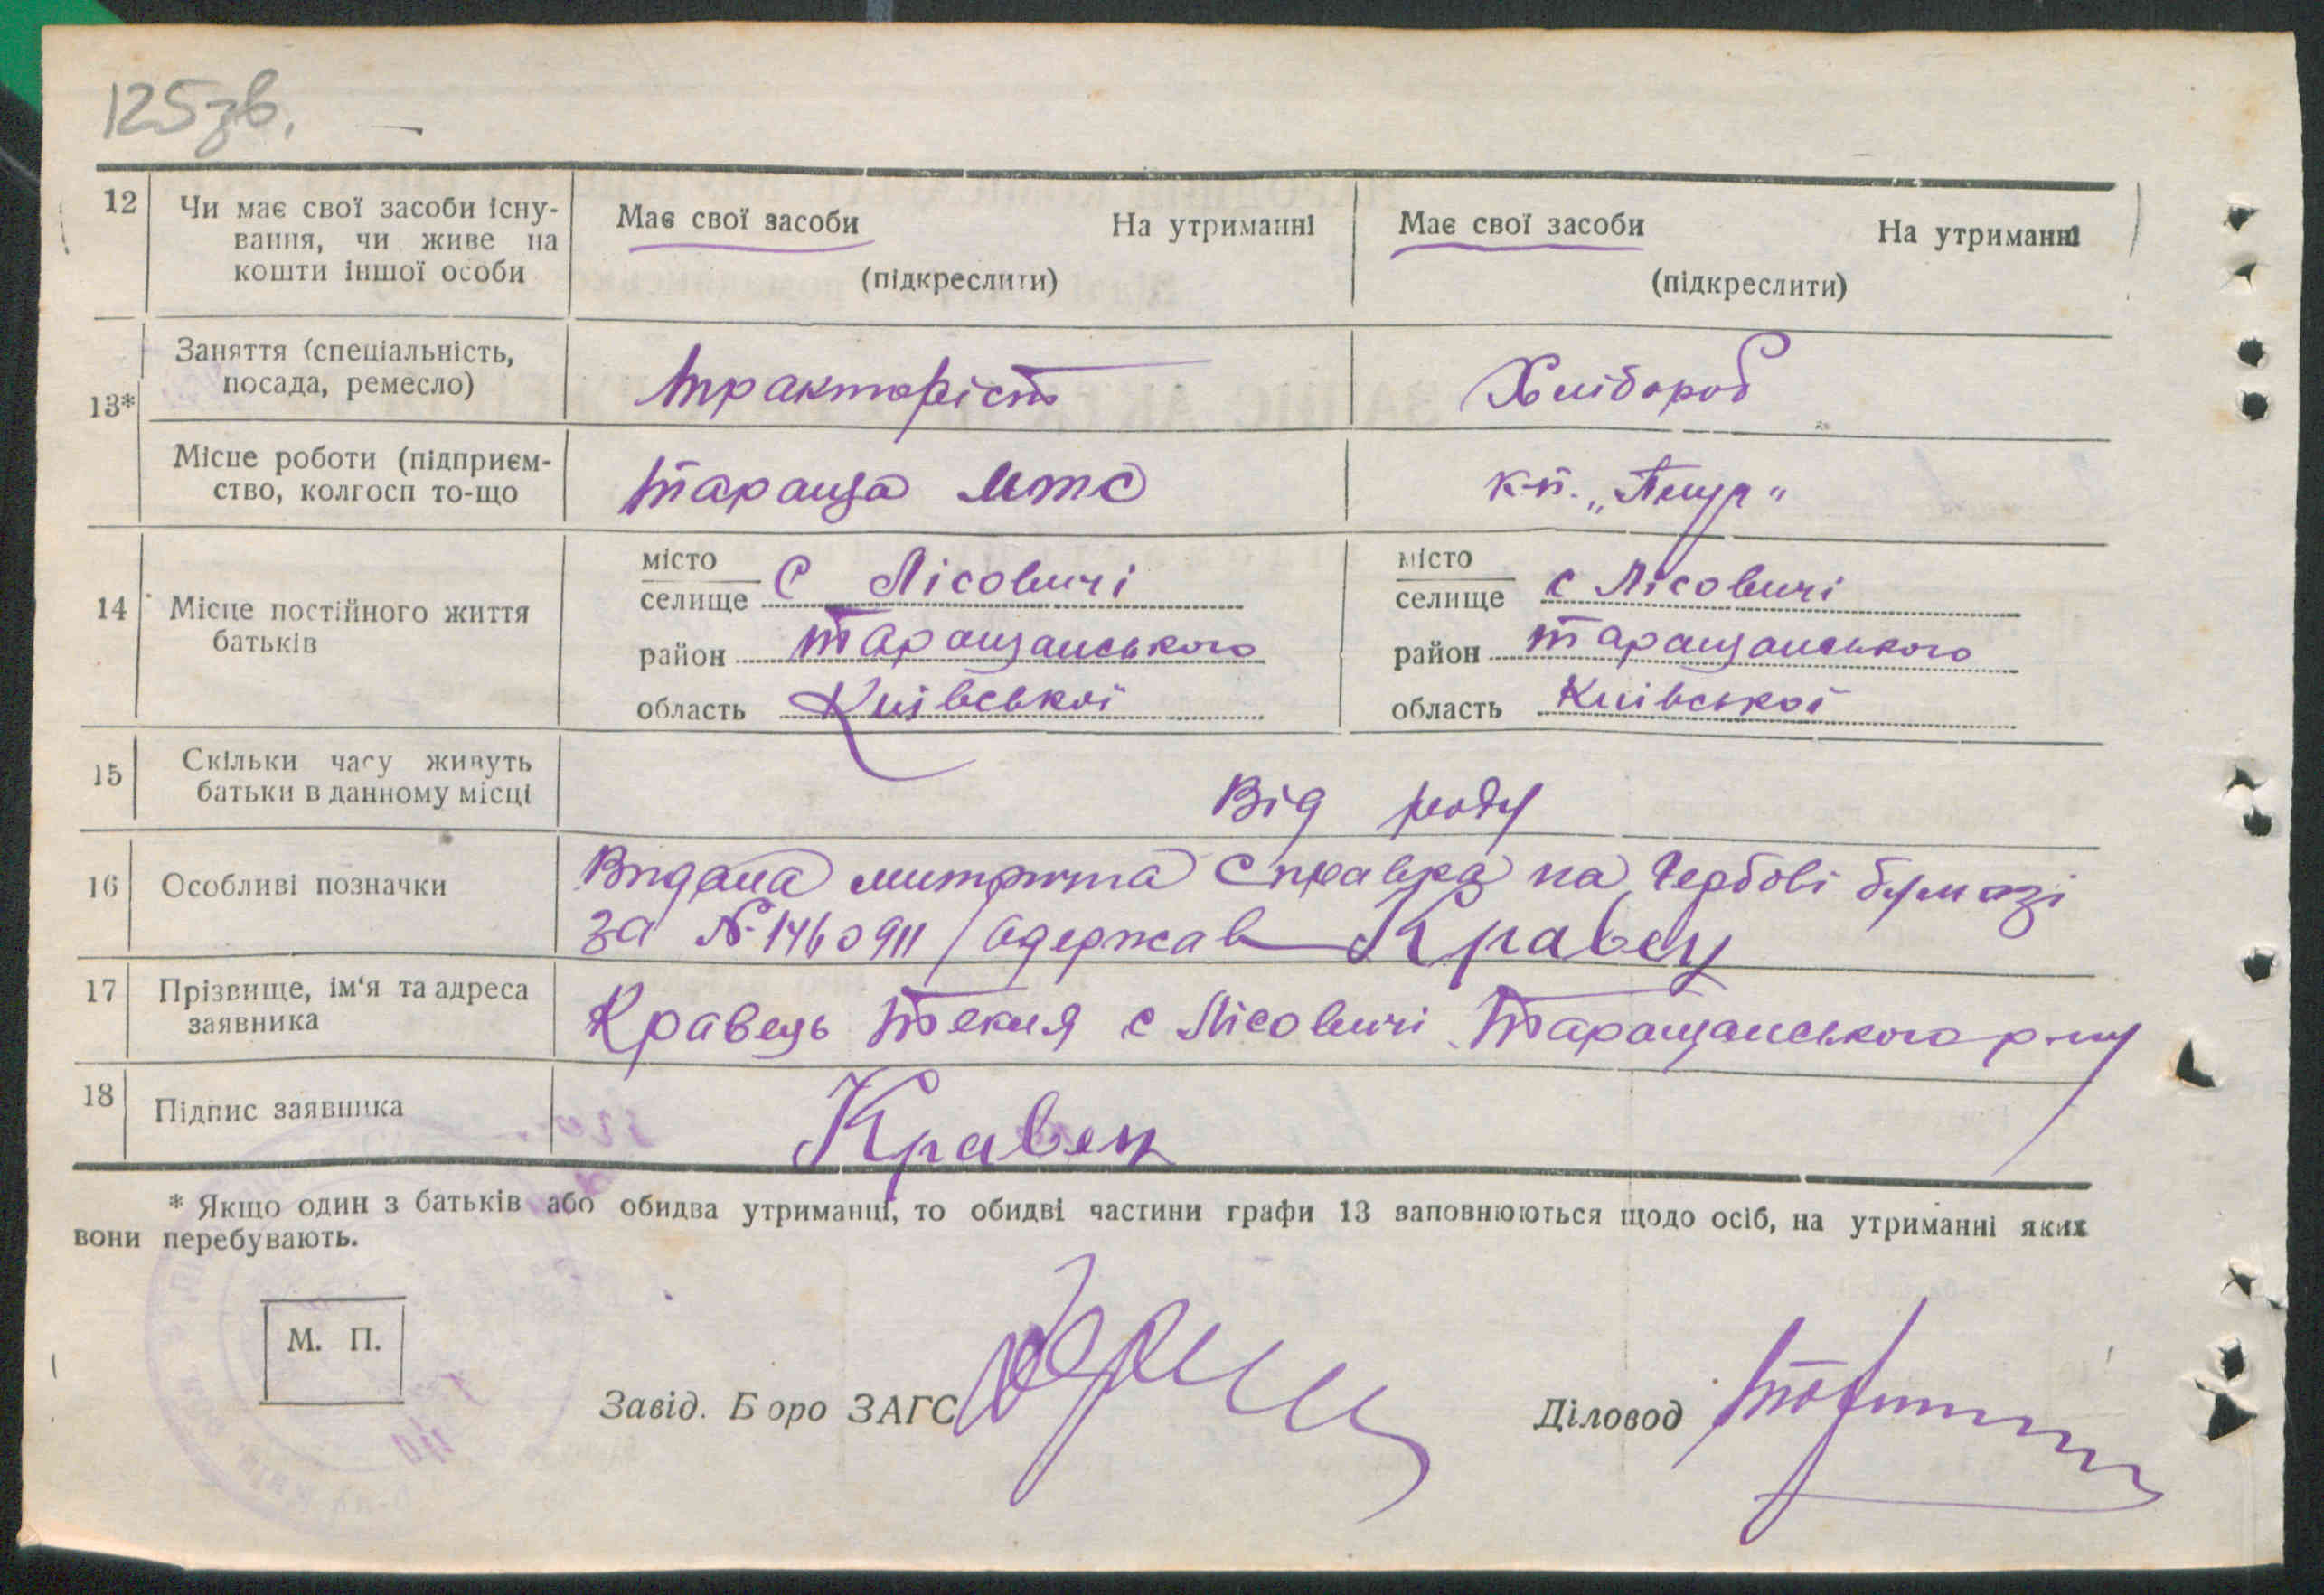 125зв.
12 Чи має свої засоби існу- Має свої засоби На утриманні Має свої засоби На утриманні
вання, чи живе на
кошти іншої особи (підкреслити) (підкреслити)
13* Заняття (спеціальність, Тракторіст Хлібороб
посада, ремесло)
Місце роботи (підприєм- Тараща МТС к-п.
ство, колгосп то-що
14 Місце постійного життя батьків
місто
селище с Лісовичі
район Таращанського
область Київської
місто
селище с Лісовичі
район Таращанського
область Київської
15 Скільки часу живуть Від роду
батьки в данному місці
16 Особливі позначки Видана метрична справка на Гербові бумазі
за № 1460911 / одержав Кравец
17 Прізвище, ім'я та адреса Кравець Текля с Лісовичі Таращанського р-ну
заявника
18 Підпис заявника Кравец
* Якщо один з батьків або обидва утриманці, то обидві частини графи 13 заповнюються щодо осіб, на утриманні яких
вони перебувають.
М. П.
Завід. Бюро ЗАГС
Діловод